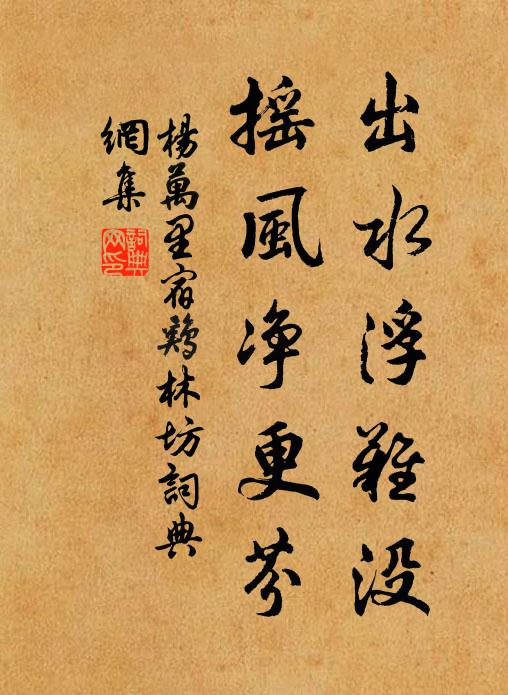 出水浮難没
摇風净更芬
楊萬里宿鷄林坊詞典
網集
詞典
网印